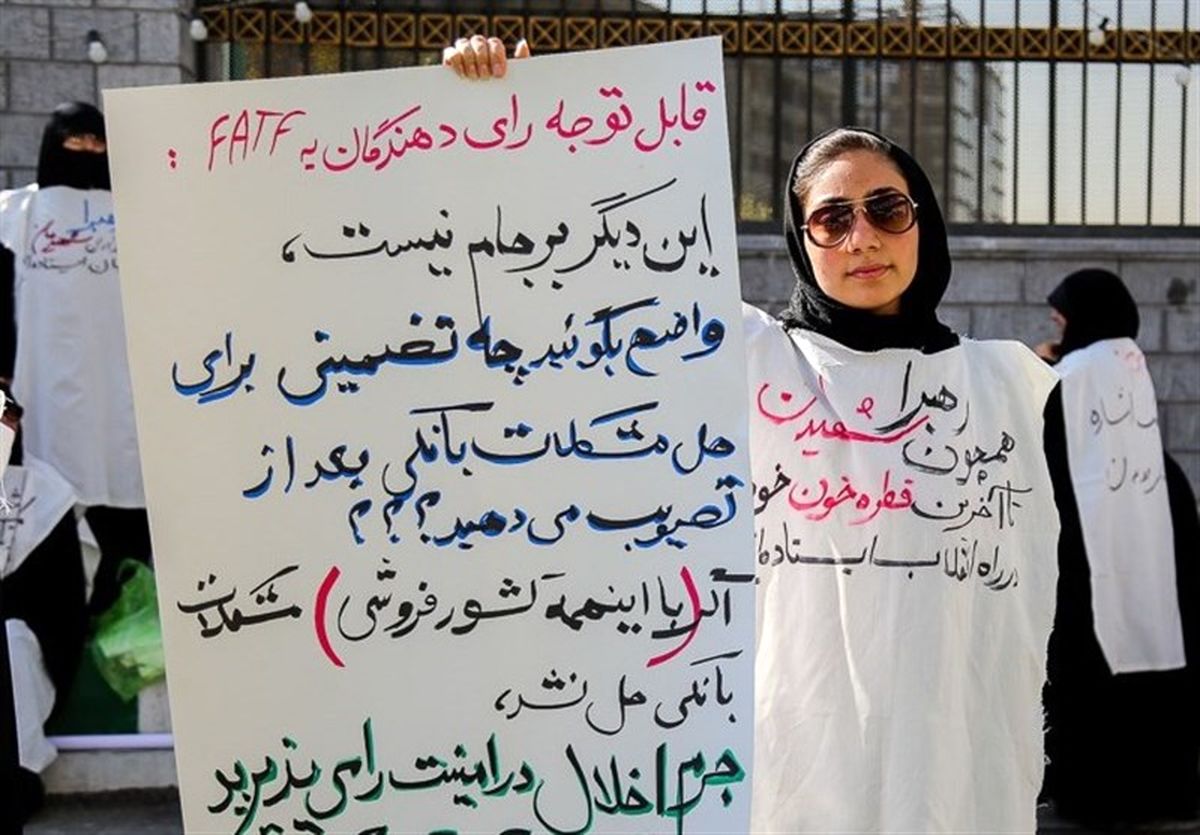 قابل توجه رای دهندگان به FATF :
این دیگر برجام نیست،
واضح بگوئید چه تضمینی برای
حل مشکلات بانکی بعد از
تصویب می دهید؟؟؟
اگر (با اینهمه کشور فروشی) مشکلات
بانکی حل نشد،
جرم اخلال در امنیت را می پذیرید
رهبرا
همچون شهیدان
تا آخرین قطره خون خود
در راه انقلاب ایستاده ایم
رهبرا